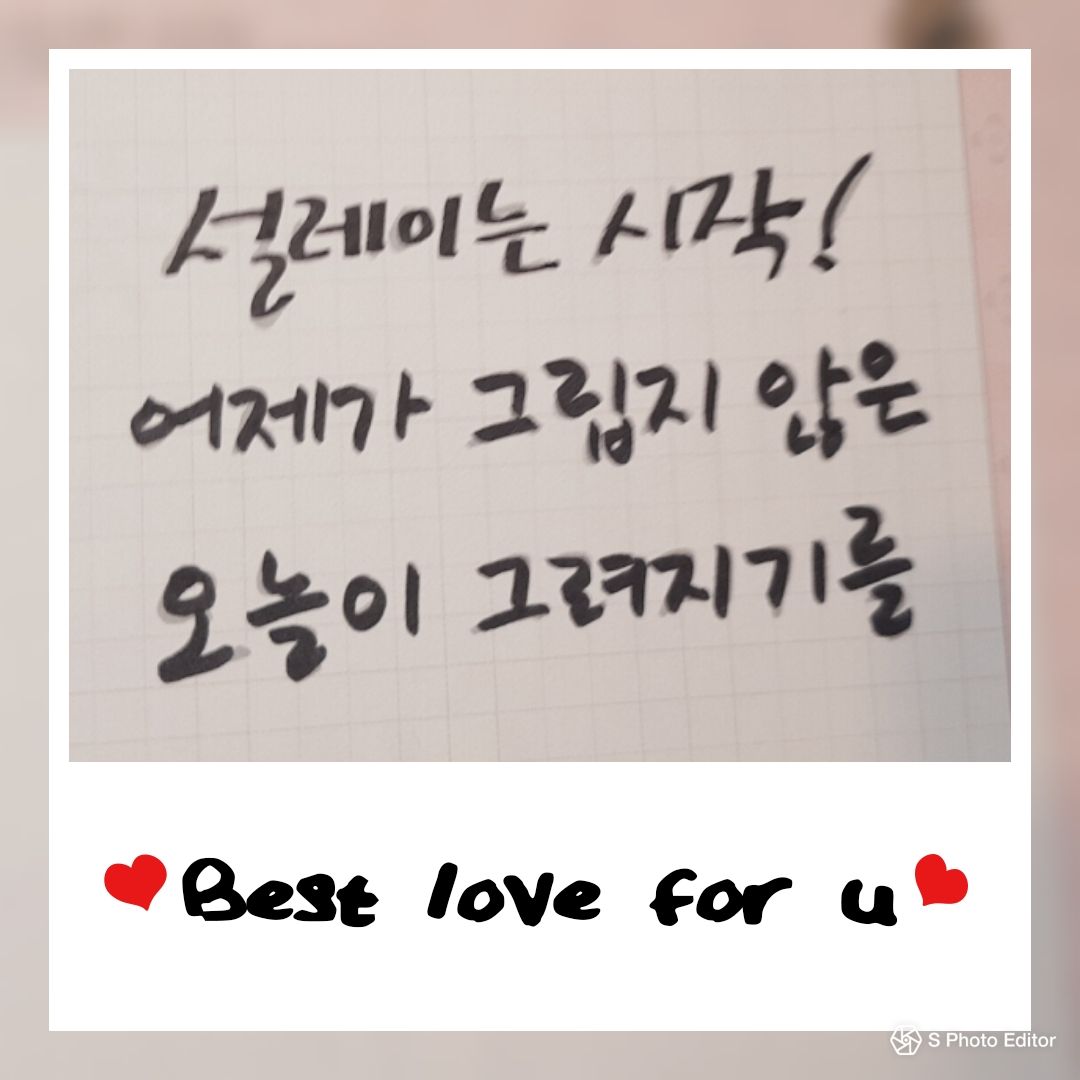 설레이는 시작!
어제가 그립지 않은
오늘이 그려지기를
Best love for u
S Photo Editor